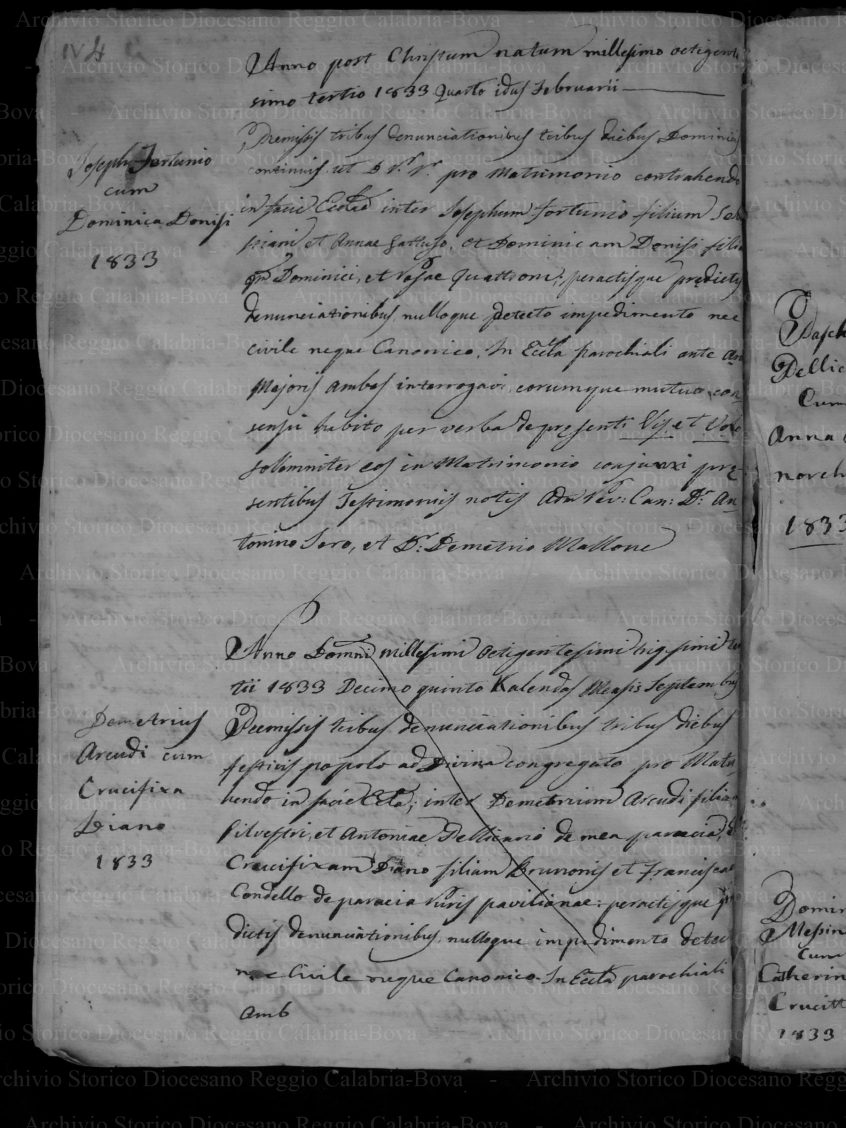 Anno post Christum natum millesimo octigente
simo tertio 1833 Quarto idus Februarii
Joseph Fortunio
cum
Dominica Donisi
1833
Premissis tribus denunciationibus tribus diebus Dominicis
continuis, ut pro Matrimonio contrahendo
in facie Eccle inter Josephum Fortunio filium Seba
stiani et Annae Gattuso, et Dominicam Donisi filia
qm Dominici, et Rosae Quattrone; peractisque predictis
denunciationibus, nulloque detecto impedimento nec
civile neque Canonico, In Eccla parochiali ante
Majoris ambos interrogavi, eorumque mutuo con
sensu habito per verba de presenti Vis, et Volo
solemniter eos in Matrimonio conjunxi pre
sentibus Testimoniis notis Adm Rev: Can: Dr. An
tonino Soro, et Dr. Demetrio Mallone
Anno Domni millesimi octigentesimi trigesimi ter
tii 1833 Decimo quinto Kalendas Mensis Septembris
Demetrius
Arcudi cum
Crucifixa
Diano
1833
Premissis tribus denunciationibus tribus diebus
festivis popolo ad Divina congregato pro Matri
hendo in facie Ecla; inter Demetrium Arcudi filium
Silvestri, et Antoniae Pellicanò de mea paracia, et
Crucifixam Diano filiam Brunonis et Franciscae
Condello de paracia Ruris pavilianae: peractisque pre
dictis denunciationibus, nulloque impedimento detec
nec Civile neque Canonico. In Eccla parochiali
amb
Pasch
Pellic
Cum
Anna
norch
1833
Domin
Messin
Cum
Catherin
Crucitt
1833
Archivio Storico Diocesano Reggio Calabria-Bova